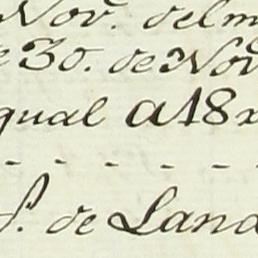 Nov. del m
e 30. de Nov
qual a 18 x
d. de Land